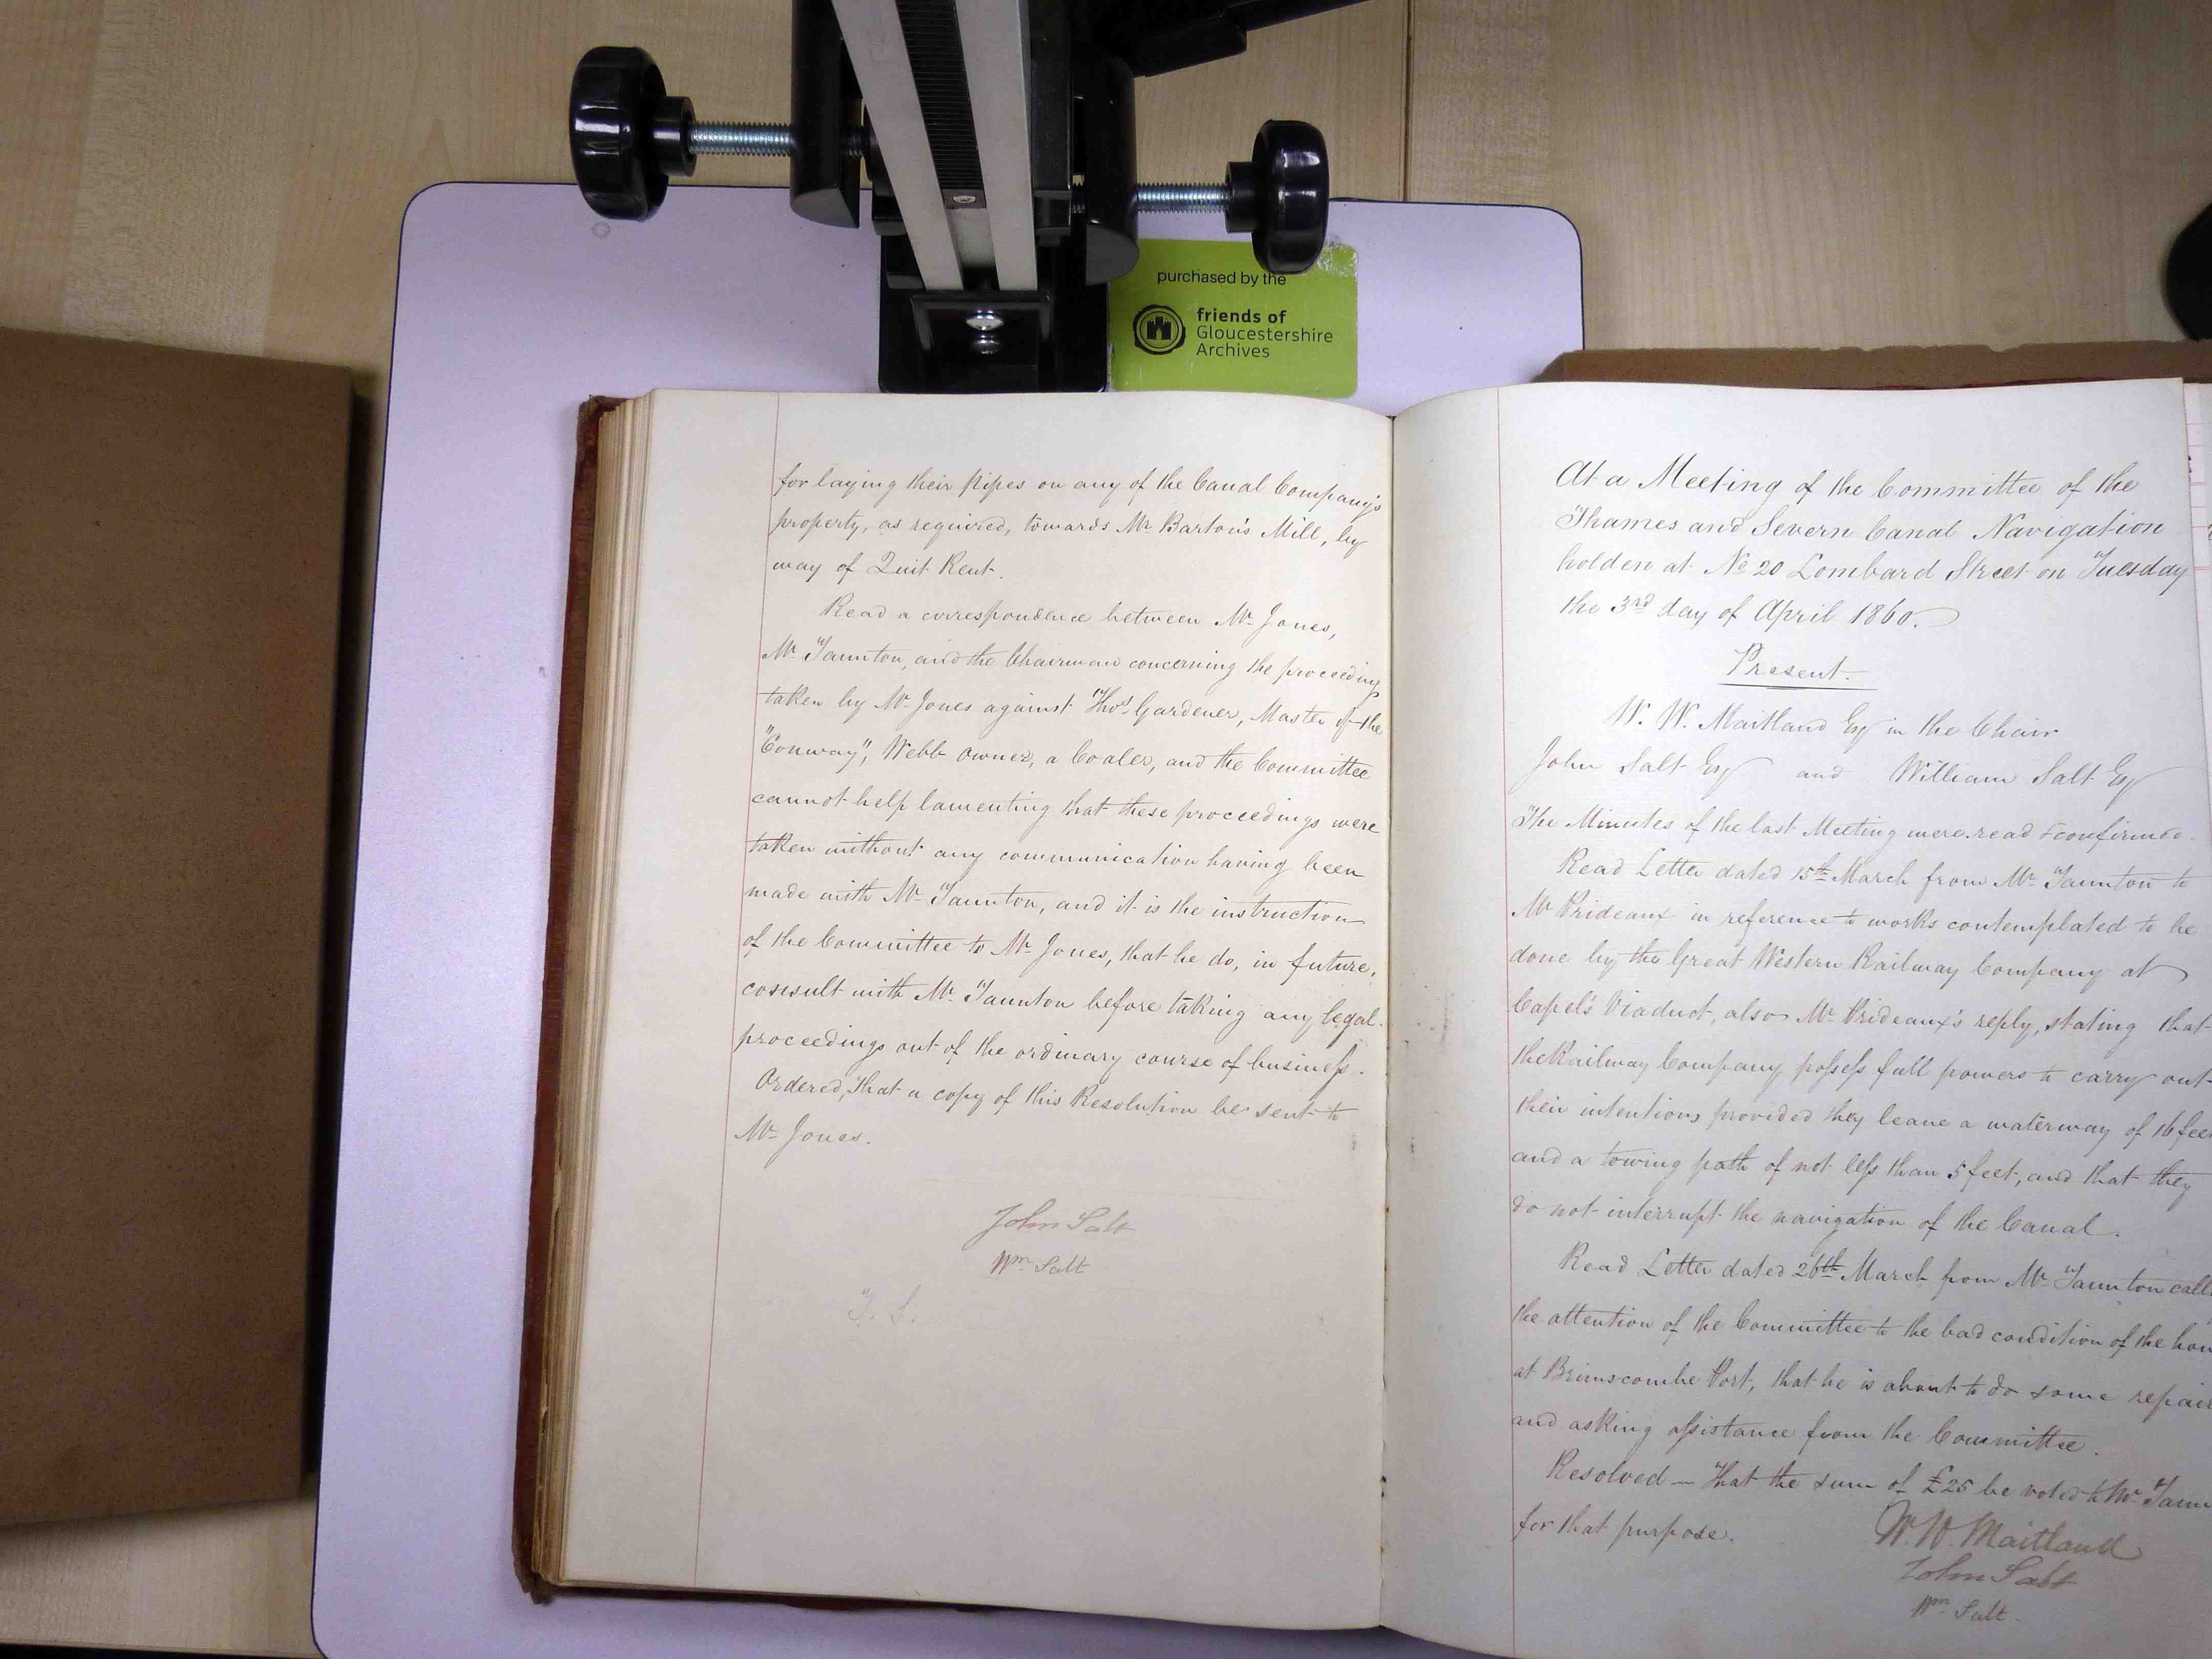 purchased by the
friends of
Gloucestershire
Archives
for laying their pipes on any of the Canal Company's
property, as required, towards Mr. Barton's Mill, by
way of Quit Rent.
Read a correspondence between Mr. Jones,
Mr. Taunton, and the Chairman concerning the proceeding
taken by Mr. Jones against Thos. Gardener, Master of the
"Conway", Webb owner, a Coaler, and the Committee
cannot help lamenting that these proceedings were
taken without any communication having been
made with Mr. Taunton, and it is the instruction
of the Committee to Mr. Jones, that he do, in future,
consult with Mr. Taunton before taking any legal
proceedings out of the ordinary course of business.
Ordered, That a copy of this Resolution be sent to
Mr. Jones.
John Salt
Wm. Salt
At a Meeting of the Committee of the
Thames and Severn Canal Navigation
holden at No. 20 Lombard Street on Tuesday
the 3rd day of April 1860.
Present.
W. W. Maitland Esq in the Chair
John Salt Esq and William Salt Esq
The Minutes of the last Meeting were read & confirmed.
Read Letter dated 15th March from Mr. Taunton to
Mr Prideaux in reference to works contemplated to be
done by the Great Western Railway Company at
Capel's Viaduct, also Mr. Prideaux's reply, stating that
the Railway Company possess full powers to carry out
their intentions provided they leave a waterway of 16 fee
and a towing path of not less than 5 feet, and that they
do not interrupt the navigation of the Canal.
Read Letter dated 26th March from Mr. Taunton call
the attention of the Committee to the bad condition of the hou
at Brimscombe Port, that he is about to do some repair
and asking assistance from the Committee.
Resolved — That the sum of £25 be voted to Mr. Taun
for that purpose.
W. W. Maitland
John Salt
Wm. Salt